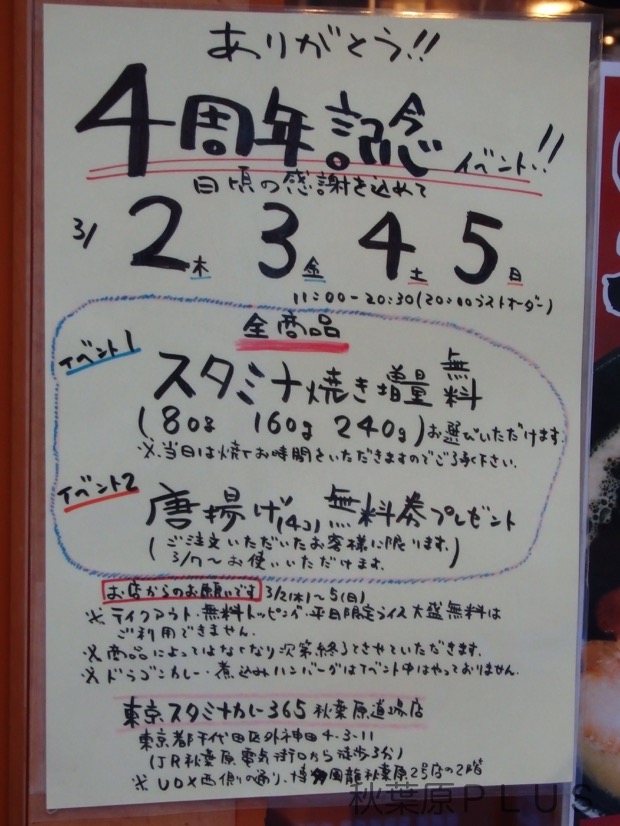 ありがとう!!
4周年記念イベント!!
日頃の感謝を込めて
3/ 2木 3金 4土 5日
11:00-20:30(20:00ラストオーダー)
全商品
イベント1
スタミナ焼き増量無料
(80g 160g 240g)お選びいただけます
※当日は焼でお時間をいただきますのでご了承下さい.
イベント2
唐揚げ(4コ)無料券プレゼント
(ご注文いただいたお客様に限ります.
3/7〜お使いいただけます.)
お店からのお願いです 3/2(木)〜5(日)
※テイクアウト・無料トッピング・平日限定ライス大盛無料は
ご利用できません.
※商品によってはなくなり次第終了とさせていただきます.
※ドラゴンカレー・煮込みハンバーグはイベント中はやっておりません.
東京スタミナカレー365秋葉原道場店
東京都千代田区外神田4-3-11
(JR秋葉原電気街口から徒歩3分)
※UDX西側の通り、博多風龍秋葉原2号店の2階
秋葉原PLUS